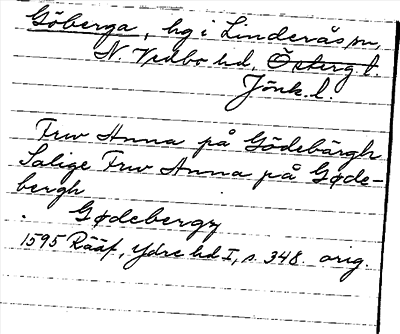 Göberga, hg i Linderås sn,
N. Vedbo hd. Österg. l.
Jönk. l.
Fruv Anna på Gödebärgh
Salige Fruv Anna på Gøde-
bergh
Gødebergz
1595 Rääf, Ydre hd I, s. 348. orig.